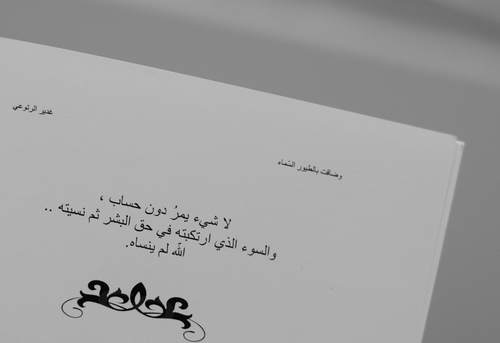 وضاقت بالطيور السّماء
غدير الرتوعي
لا شيء يمرُ دون حساب ،
والسوء الذي ارتكبته في حق البشر ثم نسيته ..
الله لم ينساه.